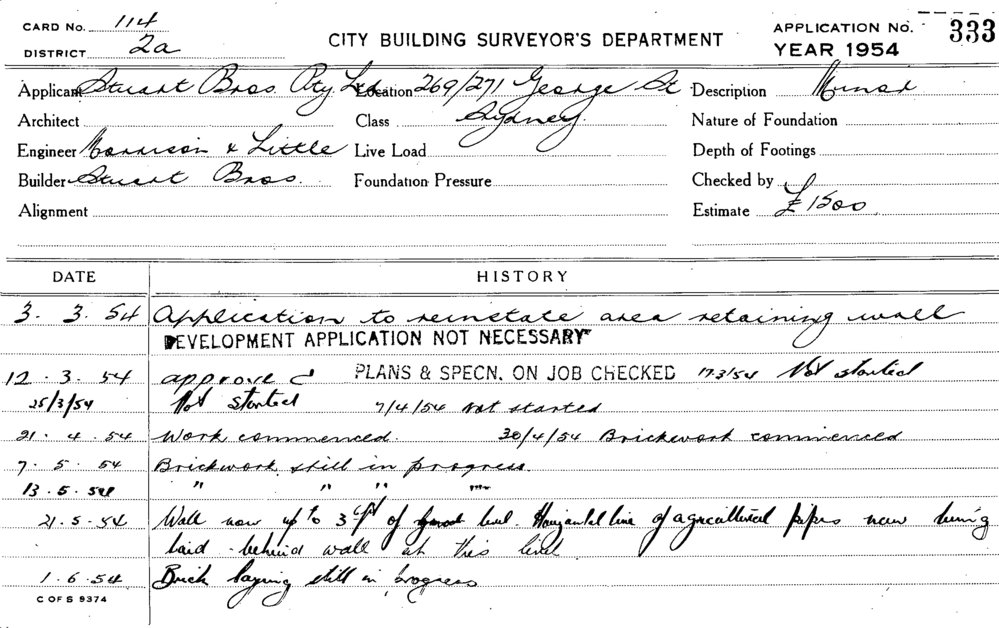 CARD No. 114
DISTRICT 2a
CITY BUILDING SURVEYOR'S DEPARTMENT
APPLICATION No. 333
YEAR 1954
Applicant Stuart Bros. Pty Ltd Location 269/271 George St Description Minor
Architect Class Sydney Nature of Foundation
Engineer Morrison & Little Live Load Depth of Footings
Builder Stuart Bros. Foundation Pressure Checked by
Alignment Estimate £1500.
DATE HISTORY
3. 3. 54 Application to reinstate area retaining wall
DEVELOPMENT APPLICATION NOT NECESSARY
12. 3. 54 approved PLANS & SPECN. ON JOB CHECKED 17/3/54 Not started
25/3/54 Not started 7/4/54 Not started
21. 4. 54 Work commenced. 30/4/54 Brickwork commenced
7. 5. 54 Brickwork still in progress.
13. 5. 54 " " " "
21. 5. 54 Wall now up to 3 of level. Horizontal line of agricultural pipes now being
laid behind wall at this level
1. 6. 54 Brick laying still in progress
C OF S 9374